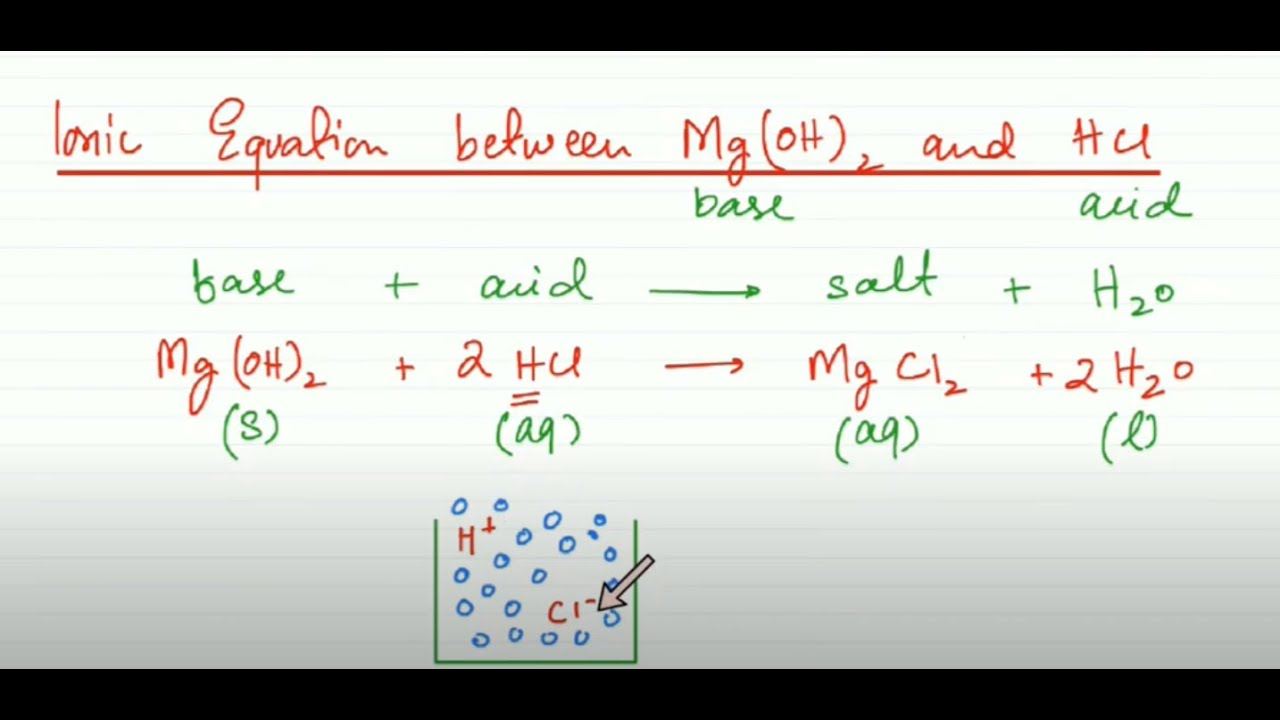 Ionic Equation between Mg(OH)₂ and HCl
base acid
base + acid → salt + H₂O
Mg(OH)₂ + 2 HCl → MgCl₂ + 2 H₂O
(s) (aq) (aq) (l)
H⁺
Cl⁻